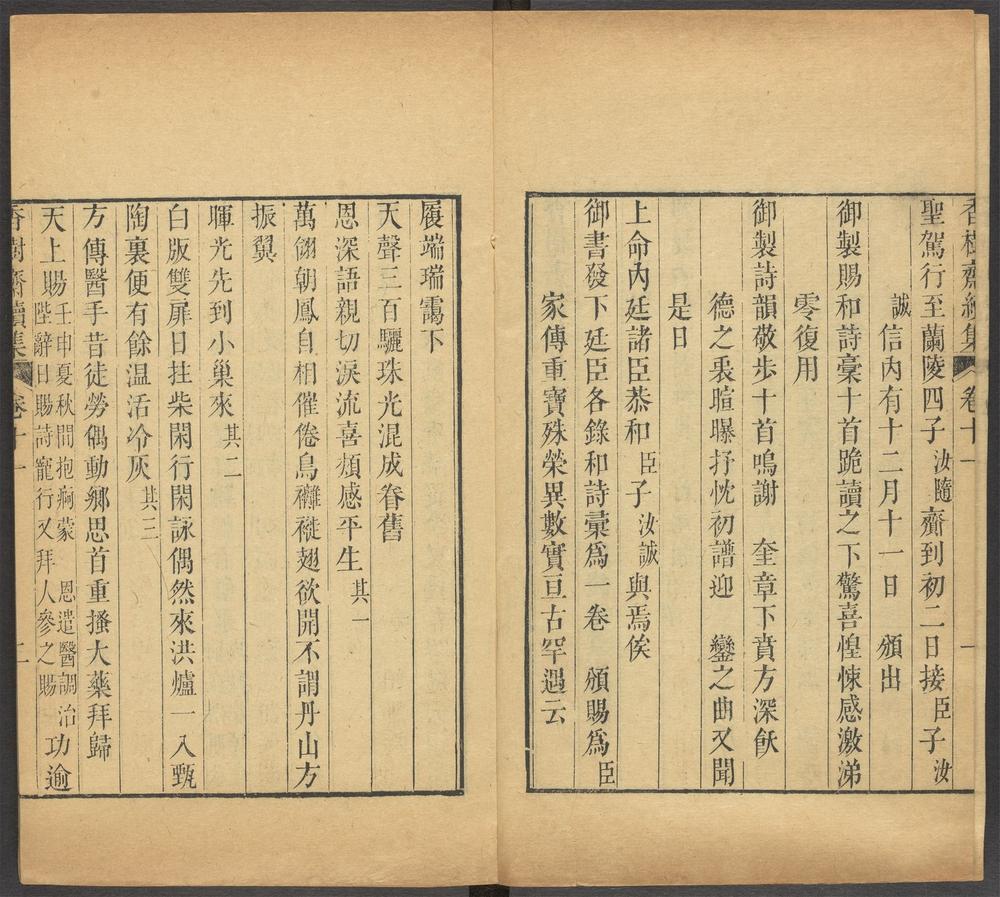 香樹齋續集 卷十一 一
聖駕行至蘭陵四子汝隨齎到初二日接臣子汝
誠信內有十二月十一日 頒出
御製賜和詩稾十首跪讀之下驚喜惶悚感激涕
零復用
御製詩韻敬步十首鳴謝 奎章下賁方深飫
德之裹暄曝抒忱初譜迎 鑾之曲又聞
是日
上命內廷諸臣恭和臣子汝誠與焉俟
御書發下廷臣各錄和詩彙爲一卷 頒賜爲臣
家傳重寶殊榮異數實亘古罕遇云
履端瑞靄下
天聲三百驪珠光混成眷舊
恩深語親切淚流喜煩感平生其一
萬翎朝鳳自相催倦鳥䙰褷翅欲開不謂丹山方
振翼
暉光先到小巢來其二
白版雙扉日拄柴閑行閑詠偶然來洪爐一入甄
陶裏便有餘温活冷灰其三
方傳醫手昔徒勞偶動鄉思首重搔大藥拜歸
天上賜壬申夏秋間抱痾蒙 恩遣醫調治
陛辭日賜詩寵行又拜人參之賜功逾
香樹齋續集 卷十一 二